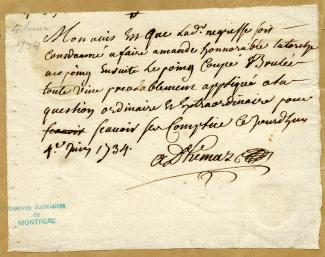 4 Juin
1734
Mon avis Est Que Lad.e negresse soit
Condamné a faire amande honnorable la torche
au poing Ensuite Le poing Coupé & Brulée
toute vive prealablement appliquée a la
question ordinaire Et Extraordinaire pour
scavoir scavoir ses Complice Ce Jourdhuy
4.e Juin 1734.
Archives Judiciaires
de
MONTREAL